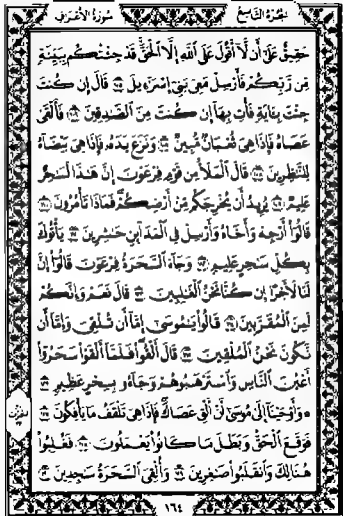 الجزء التاسع سورة الأعراف
حَقِيقٌ عَلَىٰٓ أَن لَّآ أَقُولَ عَلَى ٱللَّهِ إِلَّا ٱلْحَقَّ قَدْ جِئْتُكُم بِبَيِّنَةٍ
مِّن رَّبِّكُمْ فَأَرْسِلْ مَعِىَ بَنِىٓ إِسْرَٰٓءِيلَ ۝١٠٥ قَالَ إِن كُنتَ
جِئْتَ بِـَٔايَةٍ فَأْتِ بِهَآ إِن كُنتَ مِنَ ٱلصَّٰدِقِينَ ۝١٠٦ فَأَلْقَىٰ
عَصَاهُ فَإِذَا هِىَ ثُعْبَانٌ مُّبِينٌ ۝١٠٧ وَنَزَعَ يَدَهُۥ فَإِذَا هِىَ بَيْضَآءُ
لِلنَّٰظِرِينَ ۝١٠٨ قَالَ ٱلْمَلَأُ مِن قَوْمِ فِرْعَوْنَ إِنَّ هَٰذَا لَسَٰحِرٌ
عَلِيمٌ ۝١٠٩ يُرِيدُ أَن يُخْرِجَكُم مِّنْ أَرْضِكُمْ فَمَاذَا تَأْمُرُونَ ۝١١٠
قَالُوٓا۟ أَرْجِهْ وَأَخَاهُ وَأَرْسِلْ فِى ٱلْمَدَآئِنِ حَٰشِرِينَ ۝١١١ يَأْتُوكَ
بِكُلِّ سَٰحِرٍ عَلِيمٍ ۝١١٢ وَجَآءَ ٱلسَّحَرَةُ فِرْعَوْنَ قَالُوٓا۟ إِنَّ
لَنَا لَأَجْرًا إِن كُنَّا نَحْنُ ٱلْغَٰلِبِينَ ۝١١٣ قَالَ نَعَمْ وَإِنَّكُمْ
لَمِنَ ٱلْمُقَرَّبِينَ ۝١١٤ قَالُوا۟ يَٰمُوسَىٰٓ إِمَّآ أَن تُلْقِىَ وَإِمَّآ أَن
نَّكُونَ نَحْنُ ٱلْمُلْقِينَ ۝١١٥ قَالَ أَلْقُوا۟ فَلَمَّآ أَلْقَوْا۟ سَحَرُوٓا۟
أَعْيُنَ ٱلنَّاسِ وَٱسْتَرْهَبُوهُمْ وَجَآءُو بِسِحْرٍ عَظِيمٍ ۝١١٦
۞ وَأَوْحَيْنَآ إِلَىٰ مُوسَىٰٓ أَنْ أَلْقِ عَصَاكَ فَإِذَا هِىَ تَلْقَفُ مَا يَأْفِكُونَ ۝١١٧
فَوَقَعَ ٱلْحَقُّ وَبَطَلَ مَا كَانُوا۟ يَعْمَلُونَ ۝١١٨ فَغُلِبُوا۟
هُنَالِكَ وَٱنقَلَبُوا۟ صَٰغِرِينَ ۝١١٩ وَأُلْقِىَ ٱلسَّحَرَةُ سَٰجِدِينَ ۝١٢٠
١٦٤